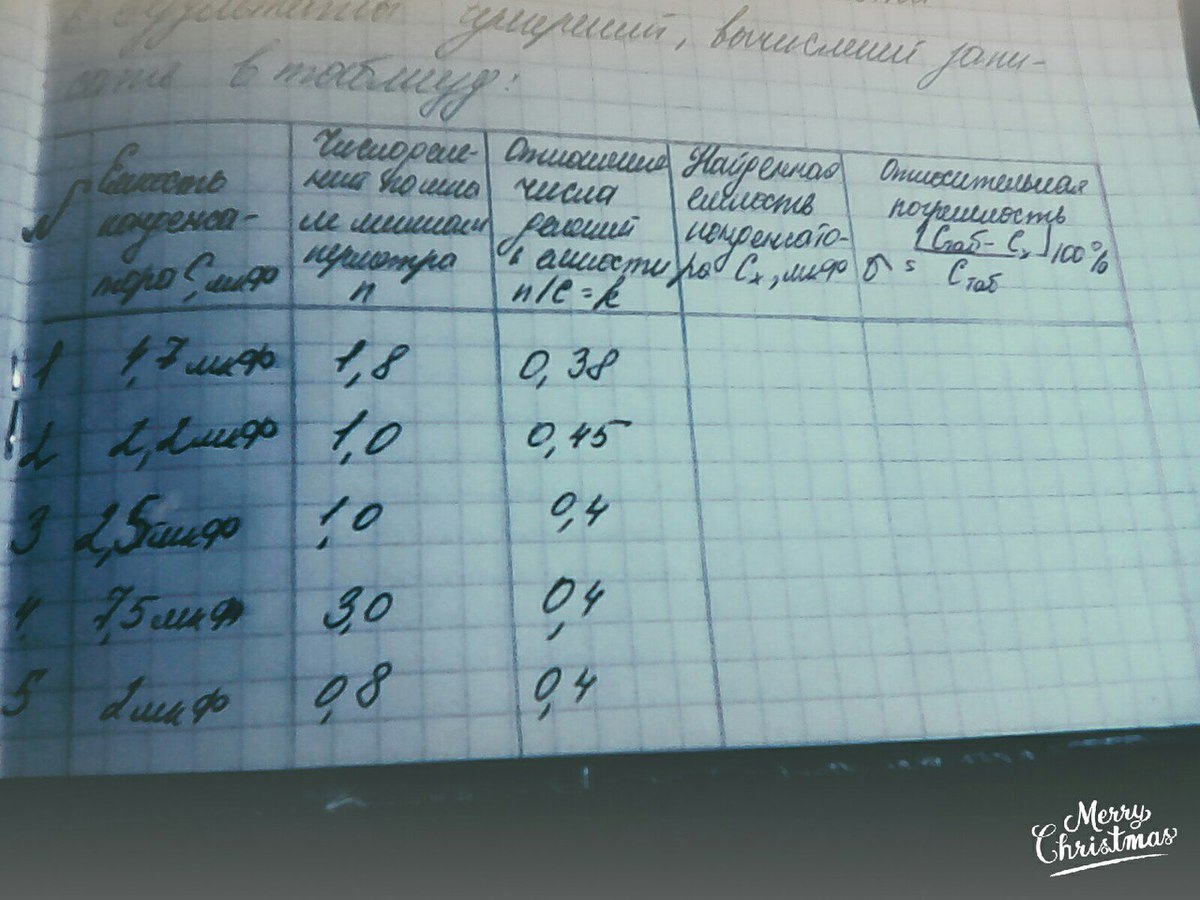 измерений, вычислений запи-
сать в таблицу:
№
Емкость
конденса-
тора C, мкФ
Число деле-
ний по шка
ле миллиам
перметра
n
Отношение
числа
делений
к емкости
n/C = k
Найденная
емкость
конденсато-
ра Cх, мкФ
Относительная
погрешность
δ = [Cтаб - Cх] 100%
Cтаб
1 4,7 мкФ 1,8 0,38
2 2,2 мкФ 1,0 0,45
3 2,5 мкФ 1,0 0,4
4 7,5 мкФ 3,0 0,4
5 2 мкФ 0,8 0,4
Merry
Christmas